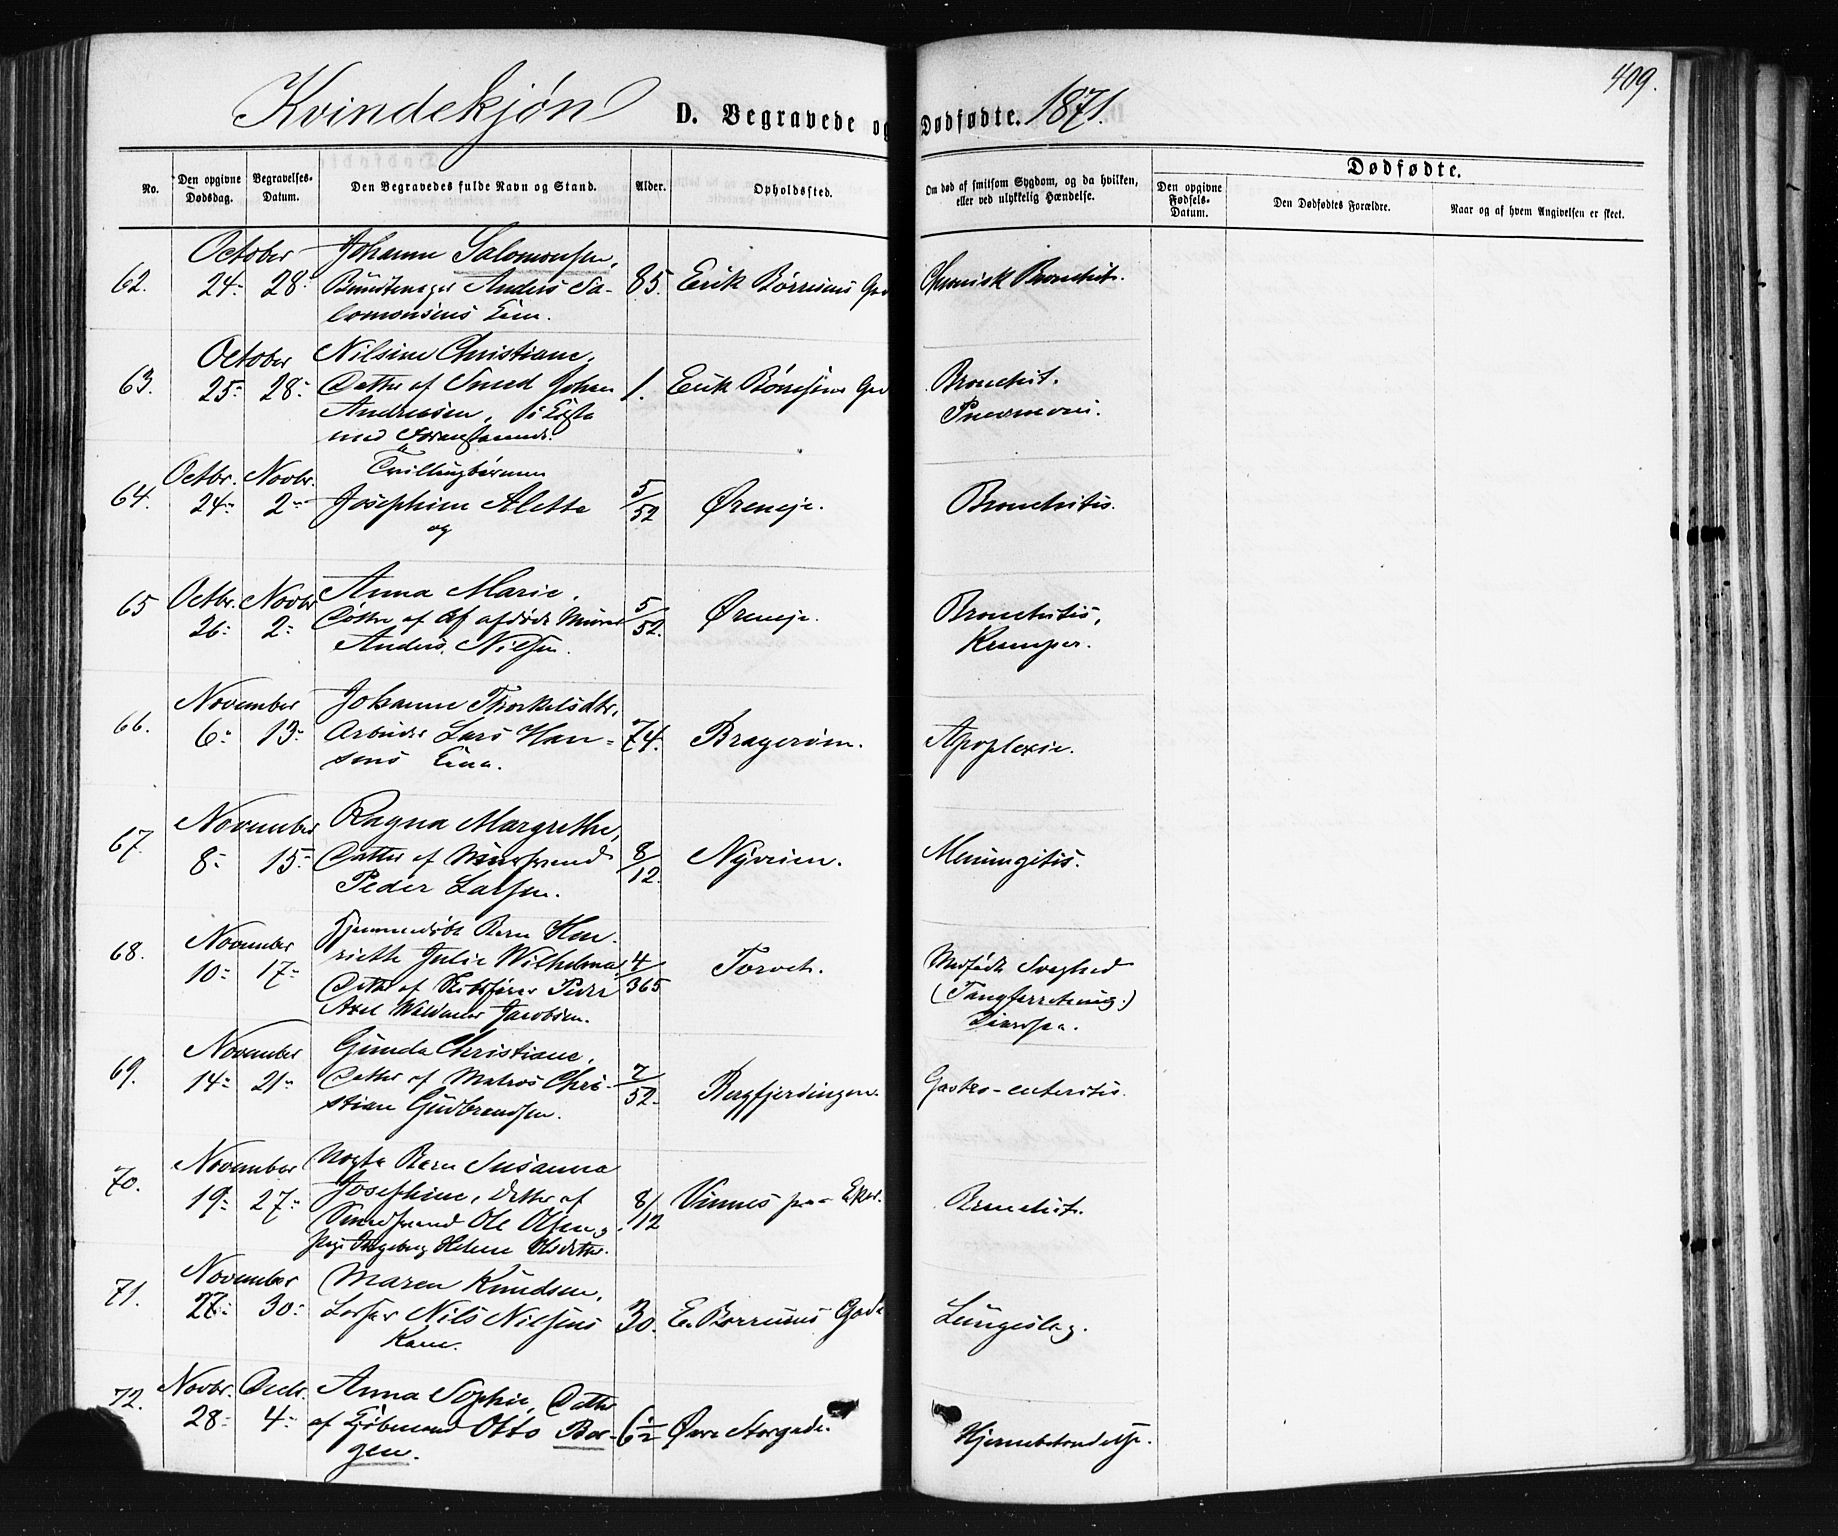 409.
Kvindekjøn D. Begravede og Dødfødte. 1871.
No. Den opgivne Dødsdag. Begravelses-Datum. Den Begravedes fulde Navn og Stand. Alder. Opholdssted. Om død af smitsom Sygdom, og da hvilken, eller ved ulykkelig Hændelse. Dødfødte.
Den opgivne Fødsels-Datum. Den Dødfødtes Forældre. Naar og af hvem Angivelsen er skeet.
October Johanne Salomonsen,
62. 24 28 Anders Sa- 85. Erik Børresens Chronisk Bronchit.
lomonsens
October Nilsine Christiane,
63. 25 28 Datter af Smed Johan 1. Erik Børresens Bronchit.
Andreasen, i Kiste Pneumoni.
med Foranstaaende.
Octbr. Novbr. Tvillingbørnene
64. 24 2 Josephine Aletta 5/52 Øreneje. Bronchitis.
og
65 Octbr. Novbr Anna Marie, 5/52. Øreneje. Bronchitis,
26 2 Døttre af afdøde Murer Kramper.
Anders Nilsen.
November Johanne Thorkelsdtr,
66. 6 13 Arbeider Lars Han- 74. Bragerøen. Apoplexie.
sens Enke.
November Ragna Margrethe,
67. 8 15 Datter af Murersvend 8/12. Nyveien. Meningitis.
Peder Larsen.
November Hjemmedøbt Barn Hen-
68. 10 17 riette Julie Wilhelmine 4/365 Torvet. Medfødt Svaghed
Datter af Skibsfører Peder (Tangforretning.)
Axel Waldemar Jacobsen. Diarrhea.
November Gunda Christiane,
69. 14 21 Datter af Matros Chri- 7/52. Bergfjerdingen. Gastro-enteritis.
stian Gudbrandsen.
November Uægte Barn Susanna
70. 19 27 Josephine, Datter af 8/12 Vinnes paa Eker. Bronchit.
Smedsvend Ole Olsen og
Pige Ingeborg Helene Olsdatter.
November Maren Knudsen,
71. 27 30 Losser Nils Nilsens 30. E. Børresens Gade Lungeslag.
Kone.
72. Novbr. Decbr. Anna Sophie, Datter
28 4 af Kjøbmand Otto Bor- 6 1/2 Øvre Storgade. Hjernebetændelse.
gen.